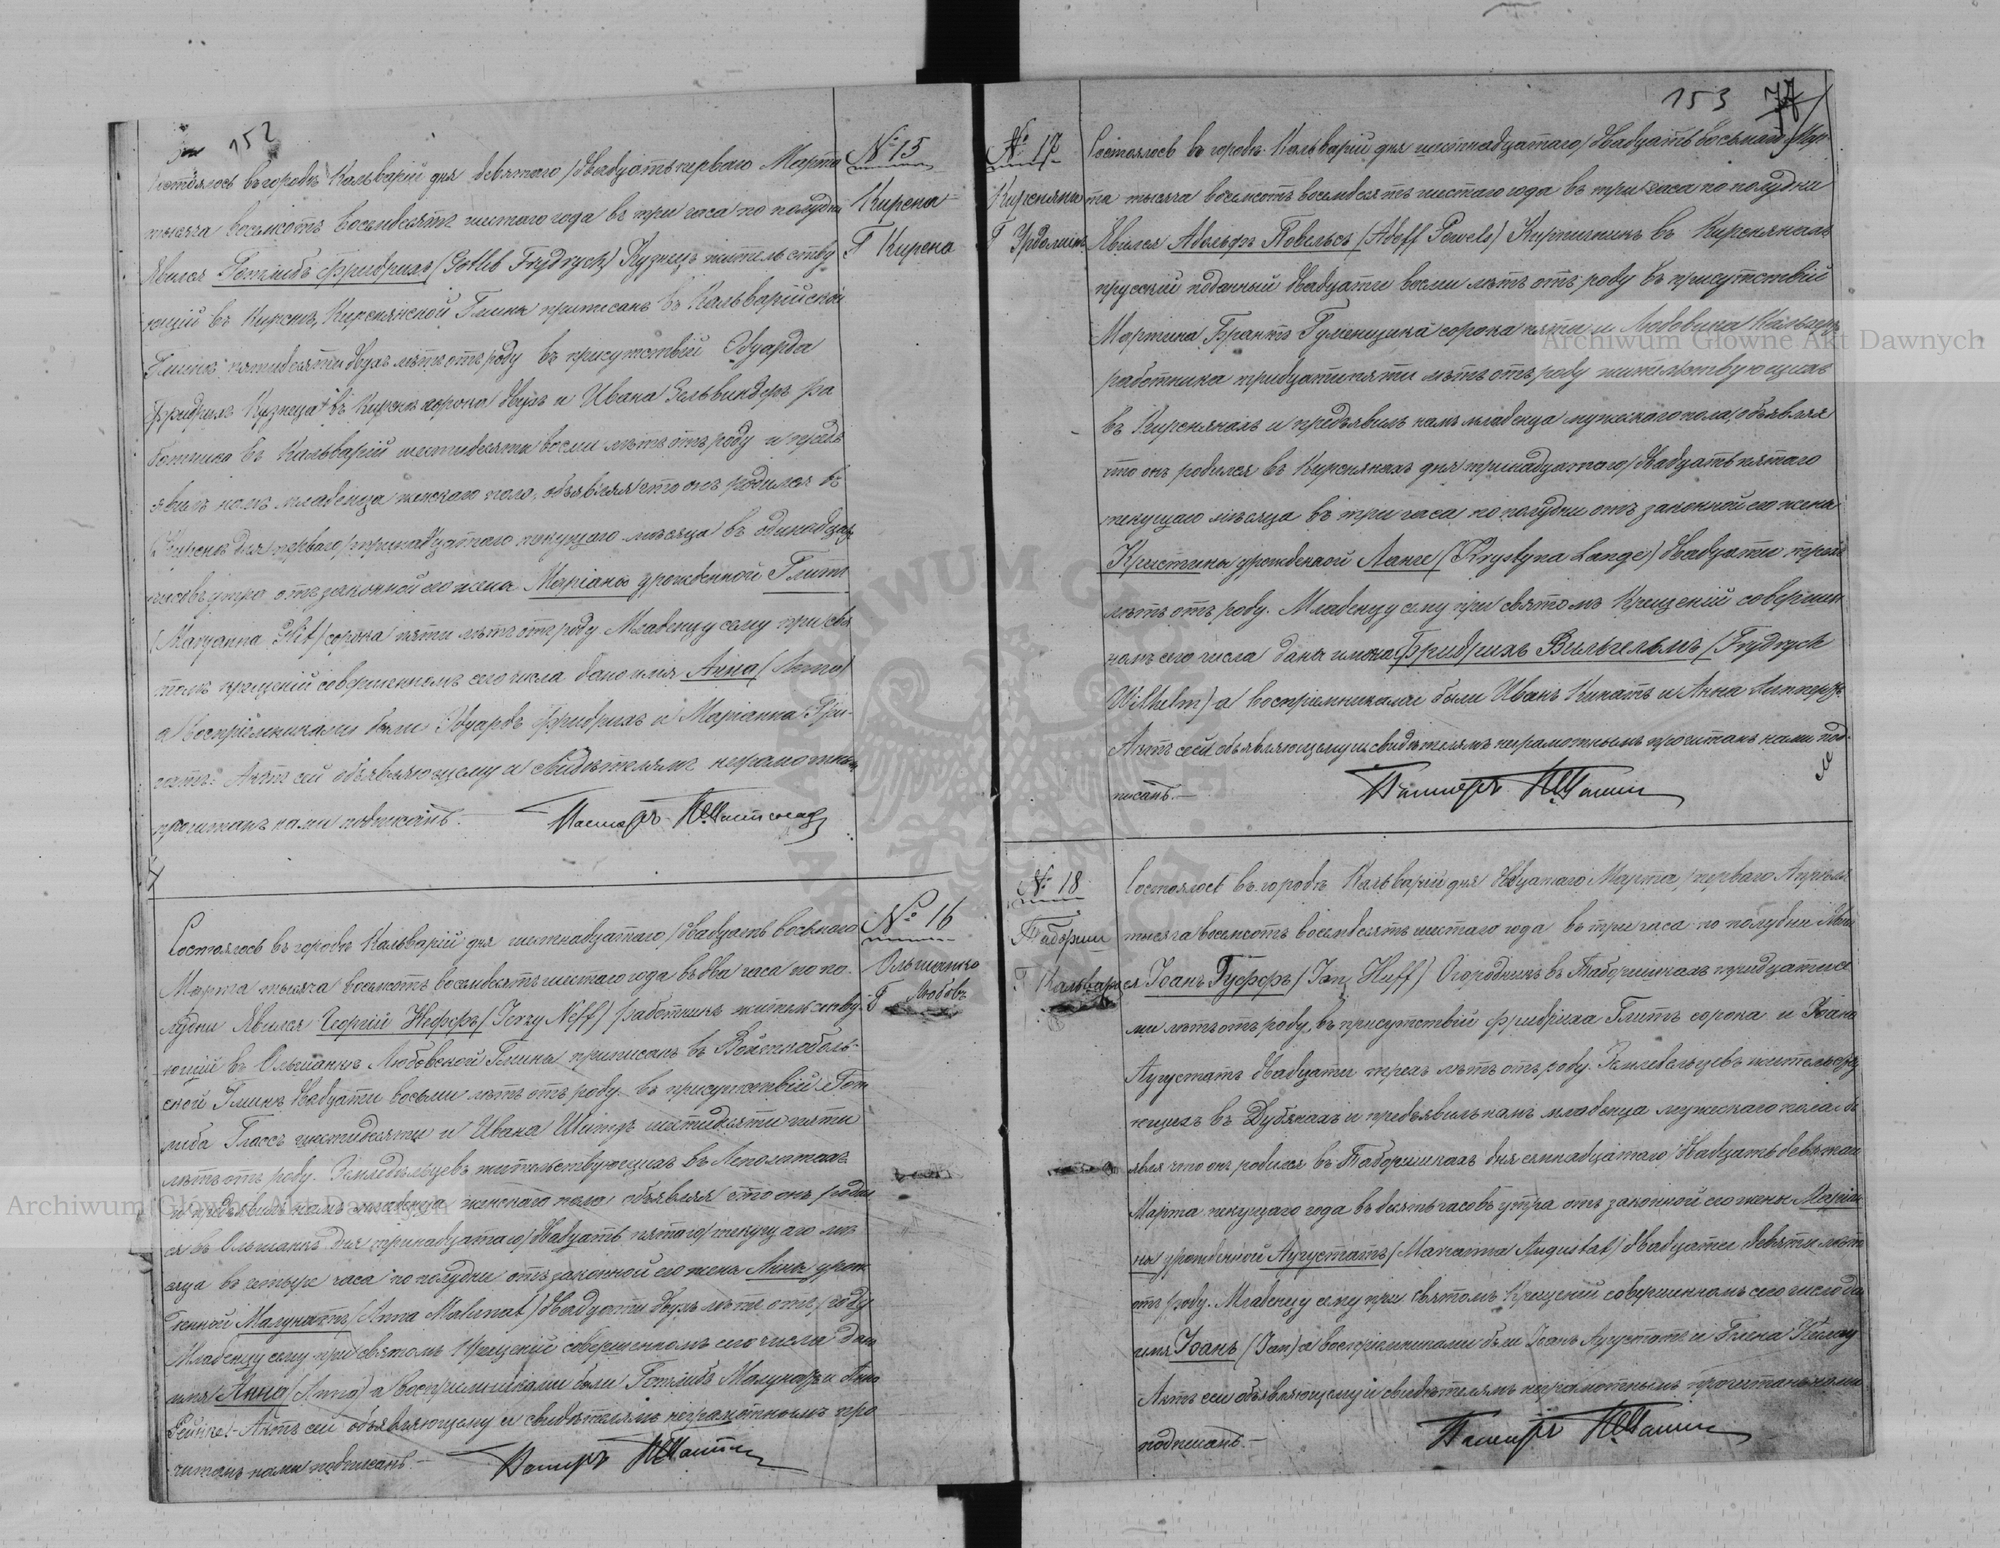 152
№ 15
Кирсна
Г Кирсна
Состоялось въ городѣ Кальваріи дня девятаго /двадцать перваго Марта
тысяча восемсотъ восемдесятъ шестаго года въ три часа по полудни
Явился Готлибъ Фридрихъ (Gotlib Frydrych) Кузнецъ жительству
ющій въ Кирснѣ, Кирснянской Гмины приписанъ въ Кальварійской
Гминѣ пятидесяти двухъ лѣтъ отъ роду въ присутствіи Эдуарда
Фридрихъ Кузнеца въ Кирснѣ сорока двухъ и Ивана Зельвиндеръ ра
ботника въ Кальваріи шестидесяти восьми лѣтъ отъ роду и предъ
явилъ намъ младенца женскаго пола, объявляя что онъ родился въ
Кирснѣ дня перваго /тринадцатаго текущаго мѣсяца въ одинадцать
часовъ утра отъ законной его жены Маріанны урожденной Глитъ
(Maryanna Glit) сорока пяти лѣтъ отъ роду Младенцу сему при свя
томъ крещеніи совершенномъ сего числа дано имя Анна (Anna)
а воспріемниками были Эдуардъ Фридрихъ и Маріанна Гри-
гатъ. Актъ сей объявляющему и свидѣтелямъ неграмотнымъ
прочитанъ нами подписанъ.
Пасторъ
№ 16
Ольшанка
Г Любовъ
Состоялось въ городѣ Кальваріи дня шестнадцатаго /двадцать восьмаго
Марта тысяча восемсотъ восемдесятъ шестаго года въ два часа по по-
лудни Явился Георгій Неффъ (Jerzy Neff) работникъ жительству-
ющій въ Ольшанкѣ Любовской Гмины приписанъ въ Войткобольской
Гминѣ двадцати восьми лѣтъ отъ роду въ присутствіи Гот
либа Глассъ шестидесяти и Ивана шестидесяти пяти
лѣтъ отъ роду. Земледѣльцевъ жительствующихъ въ
и предъявилъ намъ младенца женскаго пола объявляя что онъ родил
ся въ Ольшанкѣ дня тринадцатаго /двадцать пятаго/ текущаго мѣ-
сяца въ четыре часа по полудни отъ законной его жены Анны урож
денной Малунатъ (Anna Malunat) двадцати двухъ лѣтъ отъ роду
Младенцу сему при святомъ Крещеніи совершенномъ сего числа дано
имя Анна (Anna) а воспріемниками были Готлибъ Малунатъ и Анна
Рейнке. Актъ сей объявляющему и свидѣтелямъ неграмотнымъ про
читанъ нами подписанъ.
Пасторъ
153
77
№ 17
Кирсняны
Г
Состоялось въ городѣ Кальваріи дня шестнадцатаго /двадцать восьмаго/ Мар
та тысяча восемсотъ восемдесятъ шестаго года въ три часа по полудни
Явился Адольфъ Повельсъ (Adolf Powels) Кирпичникъ въ Кирснянахъ
прусскій поданный двадцати восьми лѣтъ отъ роду въ присутствіи
Мартина Грантъ сорока пяти и Людовика
работника тридцати пяти лѣтъ отъ роду жительствующихъ
въ Кирснянахъ и предъявилъ намъ младенца мужескаго пола, объявляя
что онъ родился въ Кирснянахъ дня тринадцатаго /двадцать пятаго
текущаго мѣсяца въ три часа по полудни отъ законной его жены
Кристины урожденной Ланге (Krystyna Lange) двадцати трехъ
лѣтъ отъ роду. Младенцу сему при святомъ Крещеніи совершен
номъ сего числа даны имена Фридрихъ Вильгельмъ (Frydrych
Wilhelm) а воспріемниками были Иванъ Кинатъ и Анна
Актъ сей объявляющему и свидѣтелямъ неграмотнымъ прочитанъ нами под-
писанъ.
Пасторъ
№ 18
Таборишки
Г Кальварія
Состоялось въ городѣ Кальваріи дня двадцатаго Марта /перваго Апрѣля
тысяча восемсотъ восемдесятъ шестаго года въ три часа по полудни Яви
ся Іоанъ Гуффъ (Jan Huff) Огородникъ въ Таборишкахъ тридцати се
ми лѣтъ отъ роду, въ присутствіи Фридриха Глитъ сорока и Іоана
Аугустатъ двадцати трехъ лѣтъ отъ роду. Земледѣльцевъ жительству
ющихъ въ и предъявилъ намъ младенца мужескаго пола объ
являя что онъ родился въ Таборишкахъ дня семнадцатаго /двадцать девятаго
Марта текущаго года въ десять часовъ утра отъ законной его жены Маріан
ны урожденной Аугустатъ (Marianna Augustat) двадцати девяти лѣтъ
отъ роду. Младенцу сему при святомъ Крещеніи совершенномъ сего числа дано
имя Іоанъ (Jan) а воспріемниками были Іоанъ Аугустатъ и
Актъ сей объявляющему и свидѣтелямъ неграмотнымъ прочитанъ нами
подписанъ.
Пасторъ
Archiwum Główne Akt Dawnych
Archiwum Główne Akt Dawnych